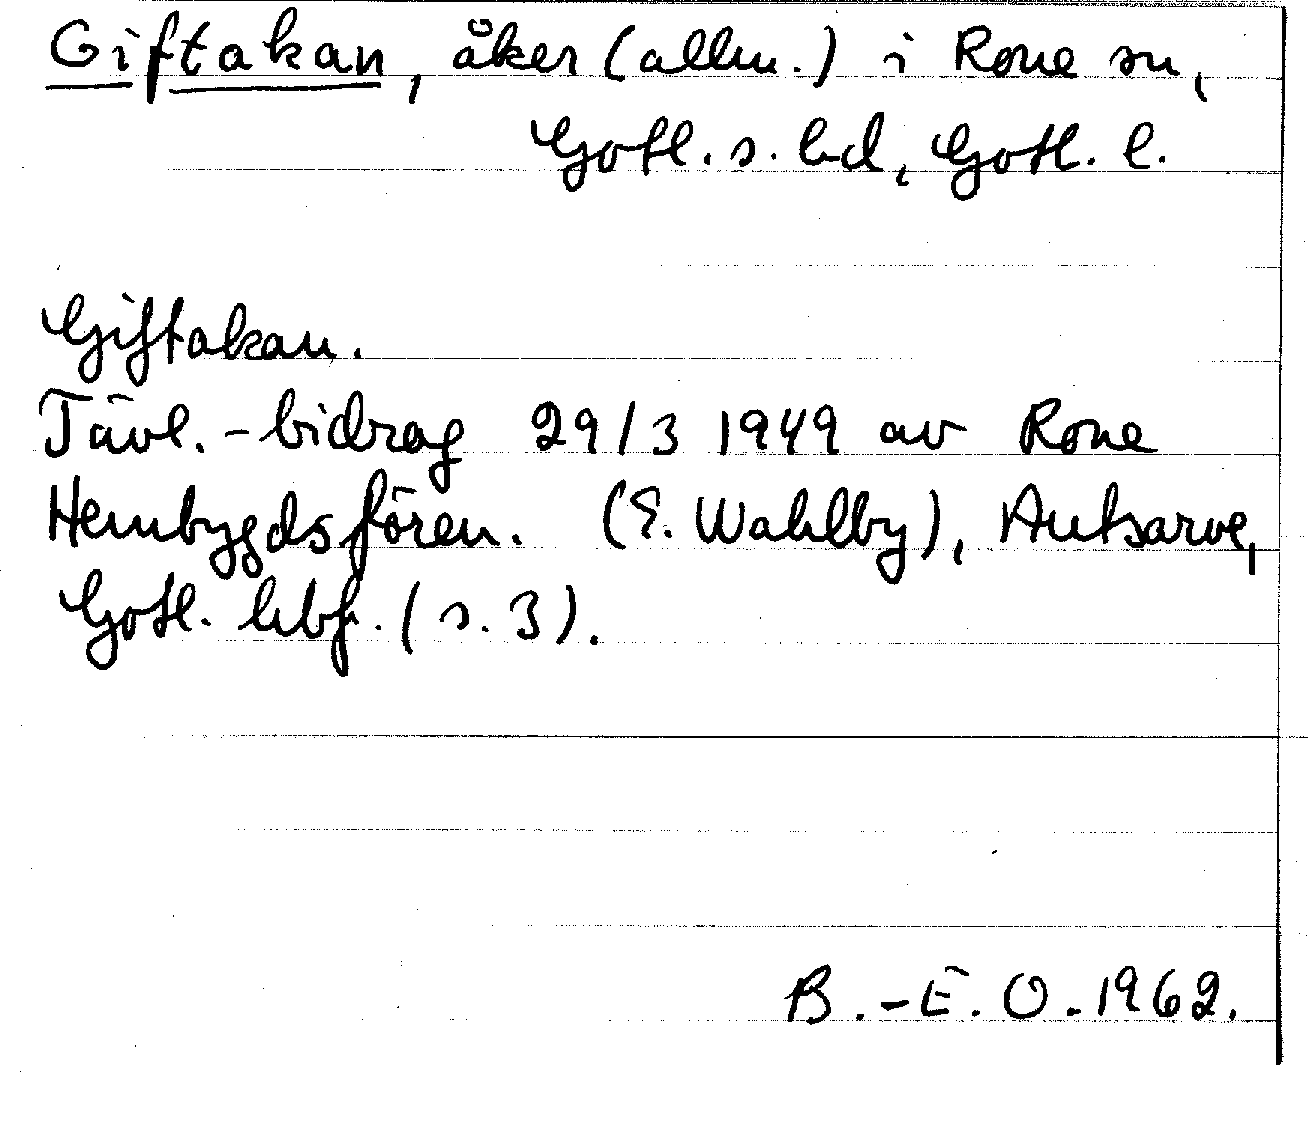 Giftakan, åker (allm.) i Rone sn,
Gotl. s. hd, Gotl. l.
Giftakan.
Tävl.-bidrag 29/3 1949 av Rone
Hembygdsfören. (E. Wahlby), Autsarve,
Gotl. hbf. (s. 3).
B.-E. O. 1962.